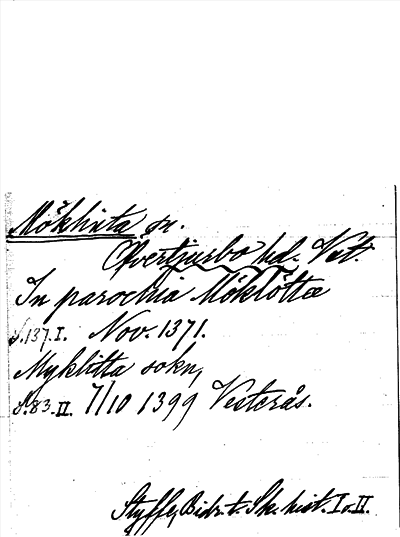 Möklinta sn.
Övertjursbo hd. Vstm.
In parochia Möklötta
S.137.I. Nov. 1371.
Myklitta sokn,
S.83.II. 7/10 1399 Vesterås.
Styffe, Bidr. t. Sk. hist. I o. II.